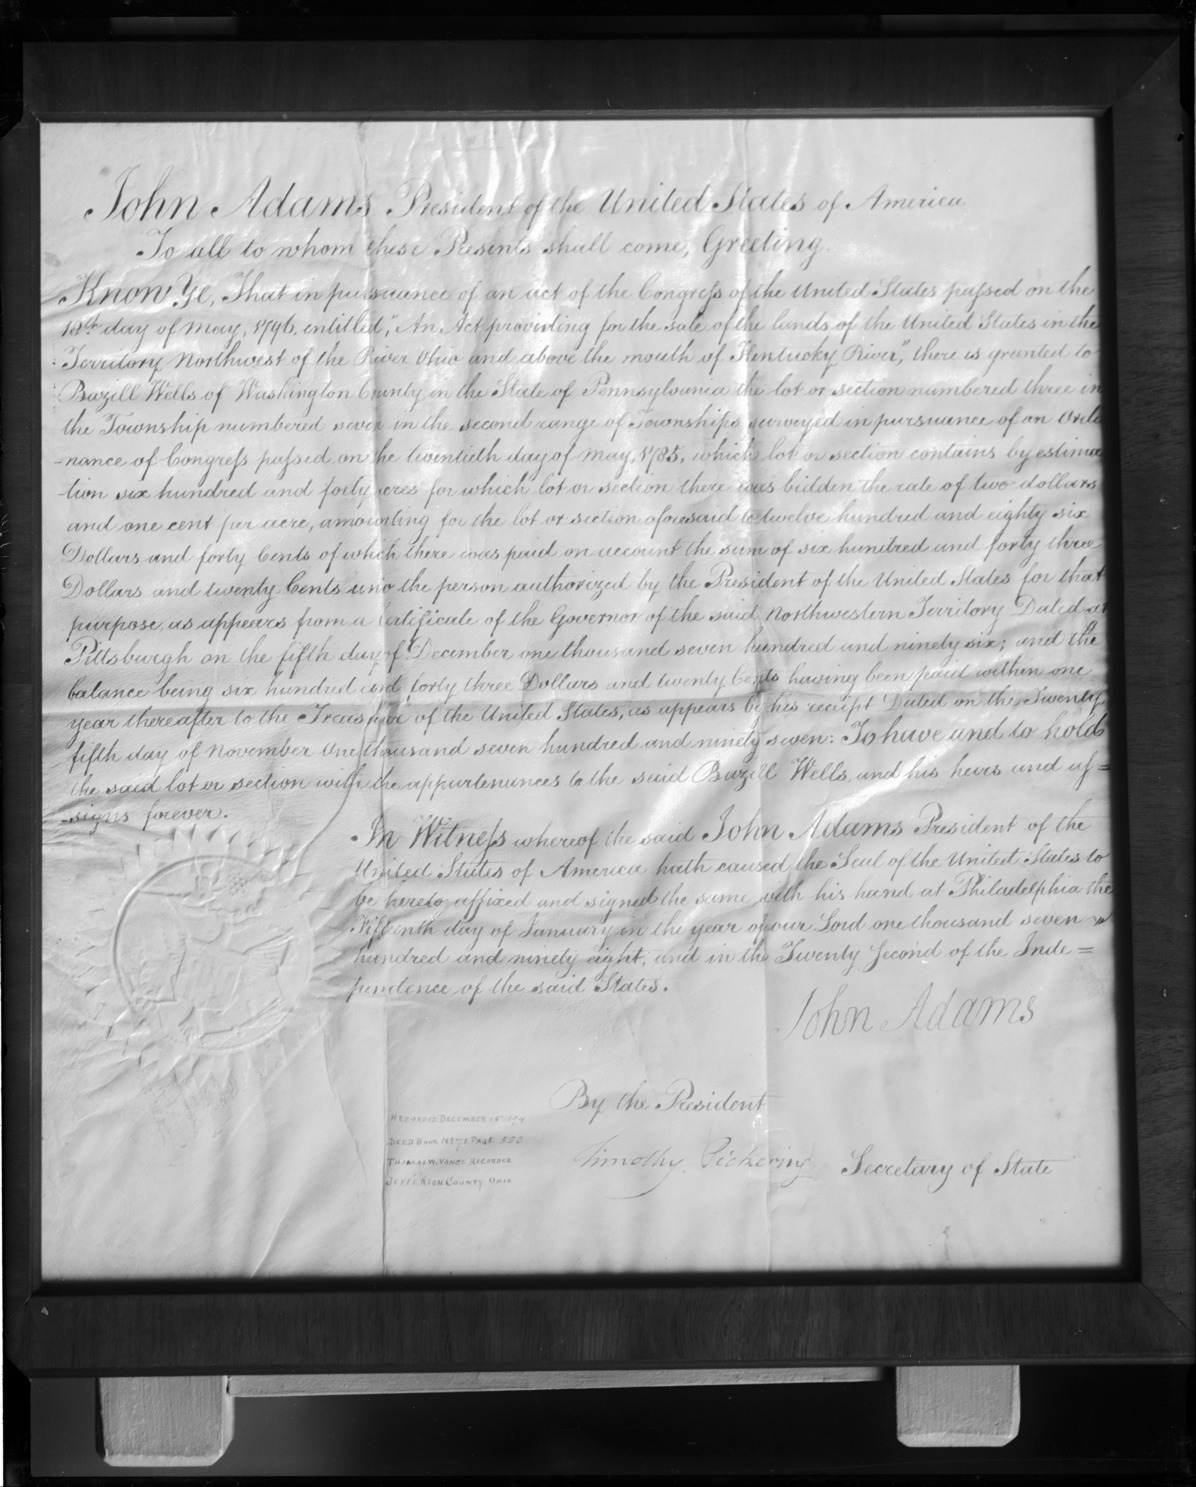 John Adams President of the United States of America
To all to whom these Presents shall come, Greeting.
Know Ye, That in pursuance of an act of the Congress of the United States passed on the
18th day of May, 1796, entitled, "An Act providing for the sale of the lands of the United States in the
Territory Northwest of the River Ohio and above the mouth of Kentucky River", there is granted to
Bazill Wells of Washington County in the State of Pennsylvania the lot or section numbered three in
the Township numbered seven in the second range of Townships surveyed in pursuance of an Ordi
-nance of Congress passed on the twentieth day of May, 1785, which lot or section contains by estima
-tion six hundred and forty acres for which lot or section there was bidden the rate of two dollars
and one cent per acre, amounting for the lot or section aforesaid to twelve hundred and eighty six
Dollars and forty Cents of which there was paid on account the sum of six hundred and forty three
Dollars and twenty Cents unto the person authorized by the President of the United States for that
purpose, as appears from a Certificate of the Governor of the said Northwestern Territory Dated at
Pittsburgh on the fifth day of December one thousand seven hundred and ninety six; and the
balance being six hundred and forty three Dollars and twenty Cents having been paid within one
year thereafter to the Treasurer of the United States, as appears by his receipt Dated on the Twenty
fifth day of November One thousand seven hundred and ninety seven: To have and to hold
the said lot or section with the appurtenances to the said Bazill Wells, and his heirs and as=
-signs forever.
In Witness whereof the said John Adams President of the
United States of America hath caused the Seal of the United States to
be hereto affixed and signed the same with his hand at Philadelphia the
Fifteenth day of January in the year of our Lord one thousand seven
hundred and ninety eight, and in the Twenty Second of the Inde=
pendence of the said States.
John Adams
By the President
Timothy Pickering Secretary of State
Recorded December
Deed Book Page
Thomas W. Vance Recorder
Jefferson County, Ohio